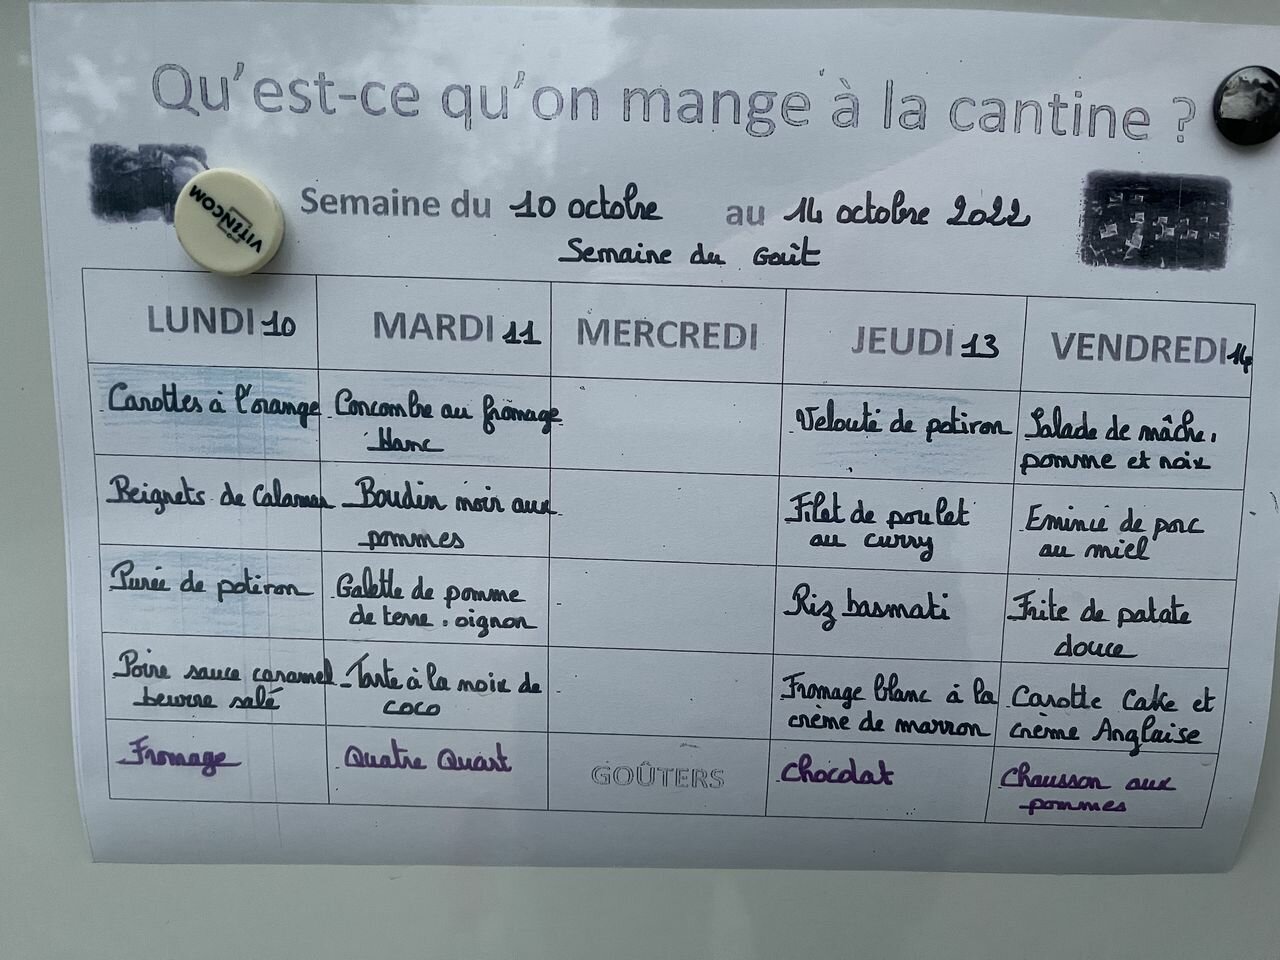 Qu'est-ce qu'on mange à la cantine ?
VITANCOM
Semaine du 10 octobre au 14 octobre 2022
Semaine du Goût
LUNDI 10 MARDI 11 MERCREDI JEUDI 13 VENDREDI 14
Carottes à l'orange
Concombre au fromage
blanc
Velouté de potiron
Salade de mâche,
pomme et noix
Beignets de Calamar
Boudin noir aux
pommes
Filet de poulet
au curry
Emincé de porc
au miel
Purée de potiron
Galette de pomme
de terre, oignon
Riz basmati
Frite de patate
douce
Poire sauce caramel
beurre salé
Tarte à la noix de
coco
Fromage blanc à la
crème de marron
Carotte Cake et
crème Anglaise
Fromage
Quatre Quart
GOÛTERS
Chocolat
Chausson aux
pommes